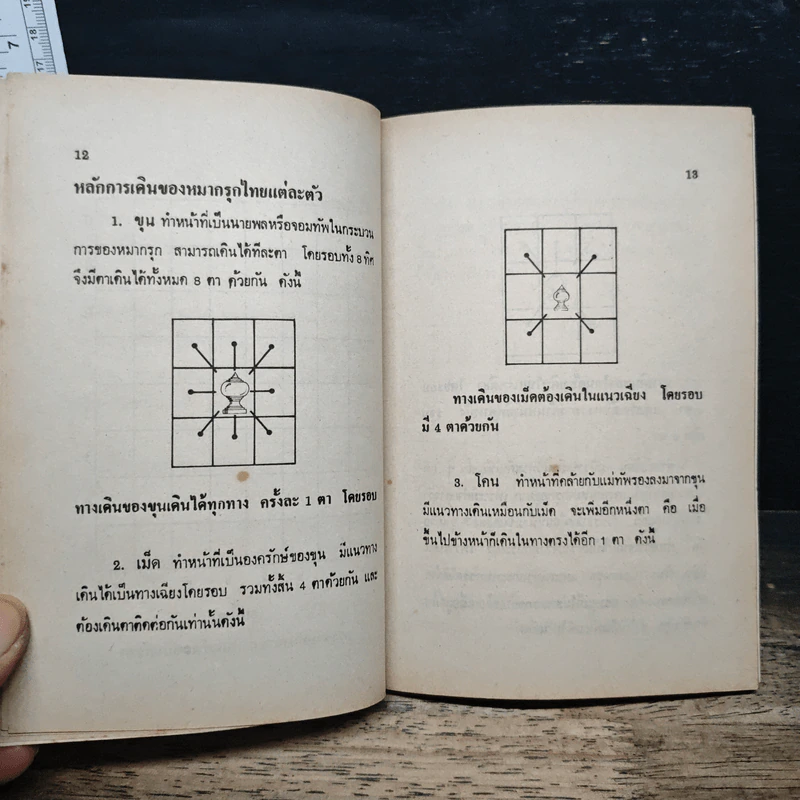 12
หลักการเดินของหมากรุกไทยแต่ละตัว
1. ขุน ทำหน้าที่เป็นนายพลหรือจอมทัพในกระบวน
การของหมากรุก สามารถเดินได้ทีละตา โดยรอบทั้ง 8 ทิศ
จึงมีตาเดินได้ทั้งหมด 8 ตา ด้วยกัน ดังนี้
ทางเดินของขุนเดินได้ทุกทาง ครั้งละ 1 ตา โดยรอบ
2. เม็ด ทำหน้าที่เป็นองครักษ์ของขุน มีแนวทาง
เดินได้เป็นทางเฉียงโดยรอบ รวมทั้งสิ้น 4 ตาด้วยกัน และ
ต้องเดินตาติดต่อกันเท่านั้นดังนี้
13
ทางเดินของเม็ดต้องเดินในแนวเฉียง โดยรอบ
มี 4 ตาด้วยกัน
3. โคน ทำหน้าที่คล้ายกับแม่ทัพรองลงมาจากขุน
มีแนวทางเดินเหมือนกับเม็ด จะเพิ่มอีกหนึ่งตา คือ เมื่อ
ขึ้นไปข้างหน้าก็เดินในทางตรงได้อีก 1 ตา ดังนี้
7
18
17